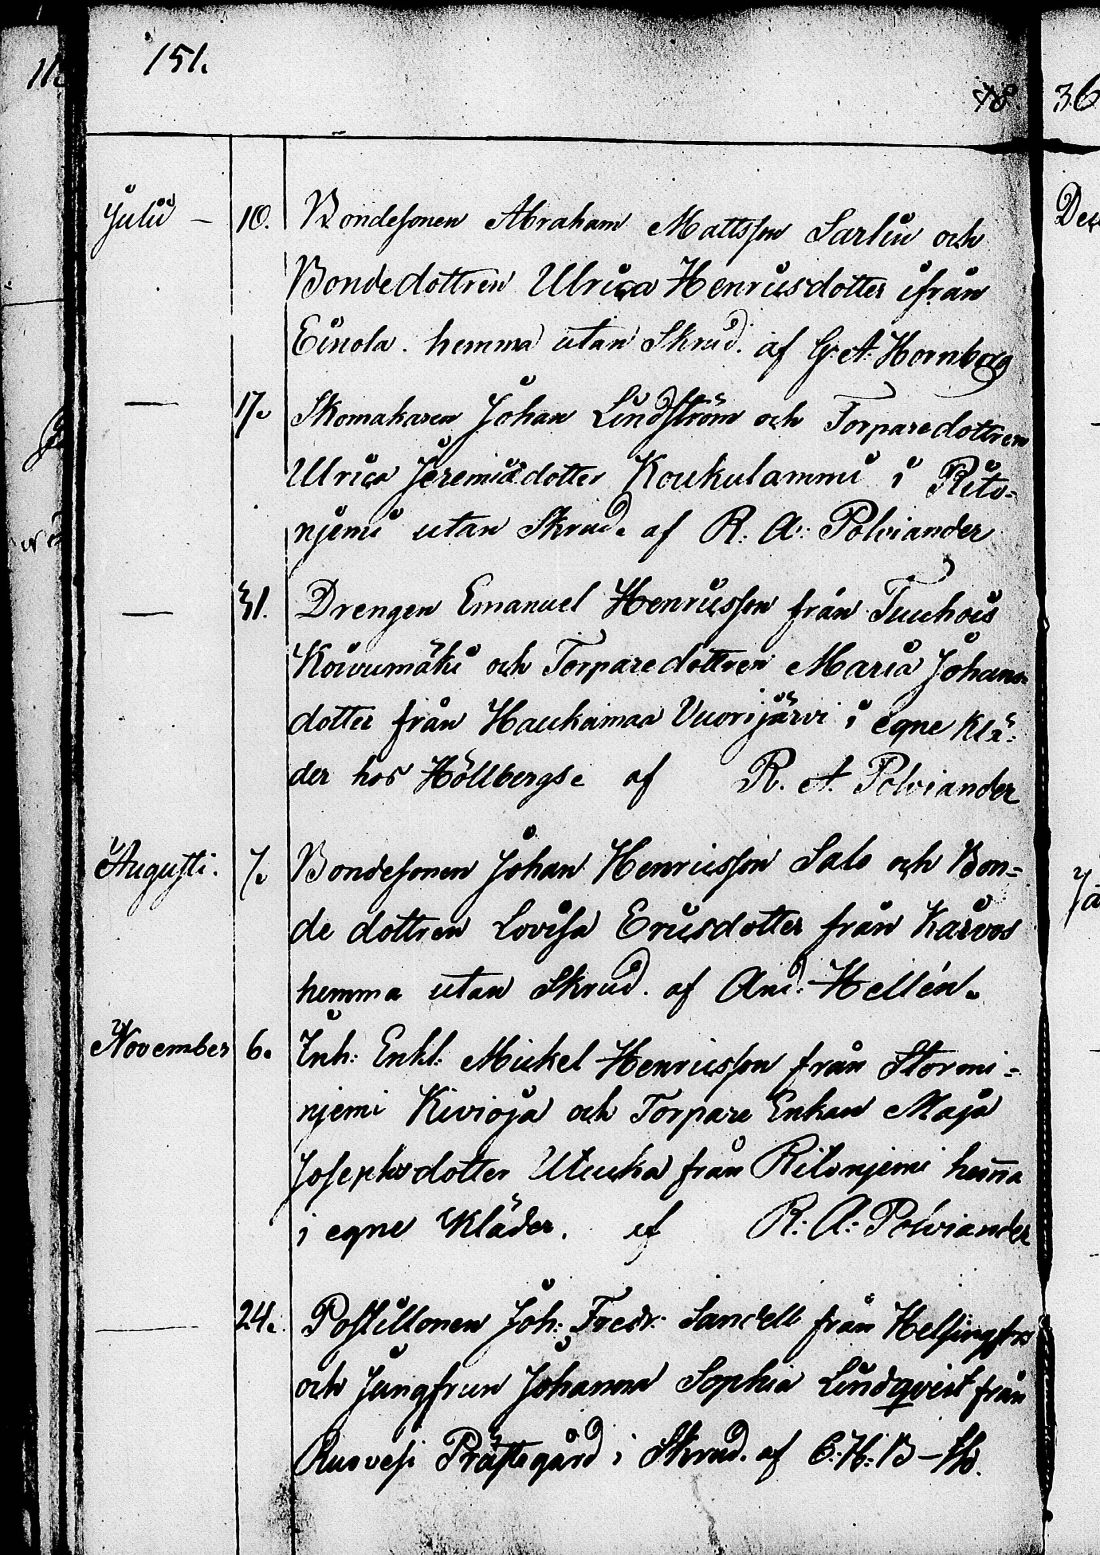 151.
18 36
Julii — 10. Bondesonen Abraham Mattsson Sarlin och
Bondedottren Ulrica Henricsdotter ifrån
Einola. hemma utan Skrud. af G. A. Hornborg
— 17. Skomakaren Johan Lindström och Torparedottren
Ulrica Jeremiædotter Koukulammi i Rito-
njemi utan Skrud. af R. A. Polviander
— 31. Drengen Emanuel Henricsson från Tuuhois
Koivumäki och Torparedottren Maria Johans
dotter från Haukamaa Vuorijärvi i egne Klä-
der hos Höllbergs. af R. A. Polviander
Augusti. 7. Bondesonen Johan Henricsson Salo och Bon-
de dottren Lovisa Ericsdotter från Karvos
hemma utan Skrud. af And. Hellén.
November 6. Inh: Enkl: Mickel Henricsson från Stormi-
njemi Kivioja och Torpare Enkan Maja
Josephsdotter från Ritonjemi hema
i egne Kläder. af R. A. Polviander
— 24. Postillonen Joh: Fredr: Sandell från Helsingfors
och Jungfrun Johanna Sophia Lindqvist från
Ruovesi Prästegård i Skrud. af C. H. B—